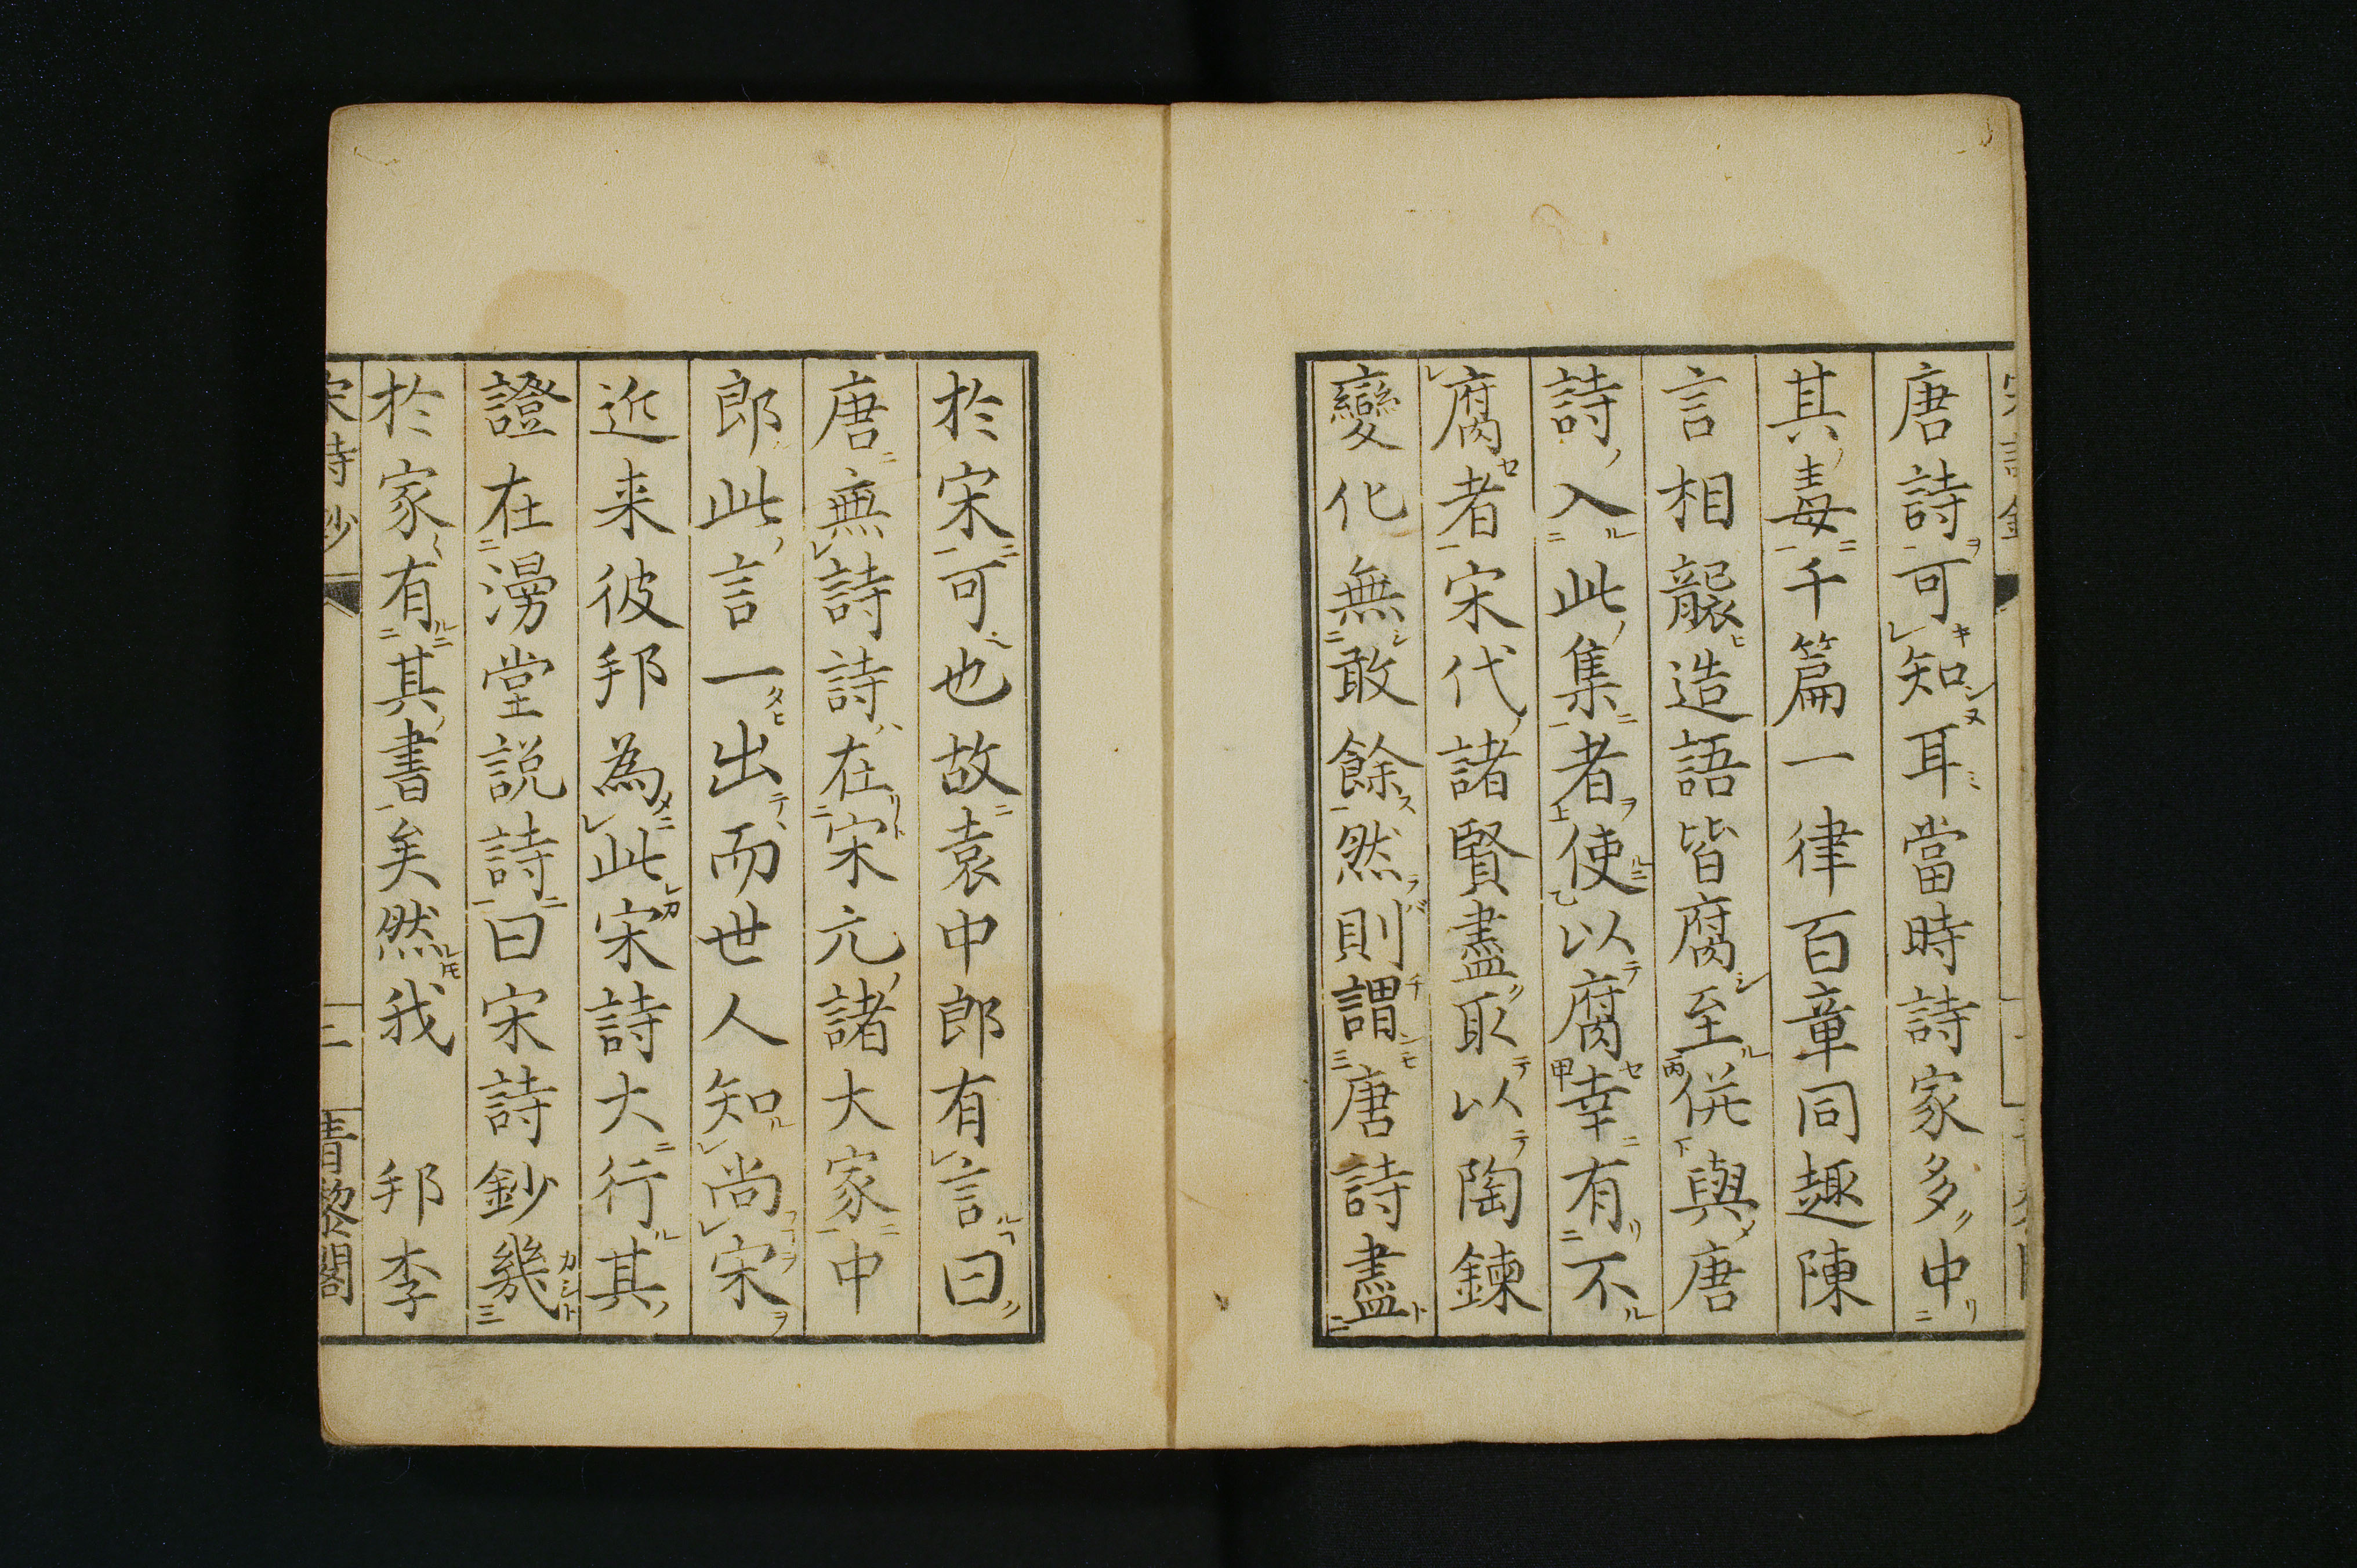 唐詩可知耳當時詩家多中
其毒千篇一律百章同趣陳
言相襲造語皆腐至併與唐
詩入此集者使以腐幸有不
腐者宋代諸賢盡取以陶鍊
變化無敢餘然則謂唐詩盡
於宋可也故袁中郎有言曰
唐無詩詩在宋元諸大家中
郎此言一出而世人知尚宋
近来彼邦為此宋詩大行其
證在漫堂説詩曰宋詩鈔幾
於家有其書矣然我 邦李
宋詩鈔 二 青藜閣